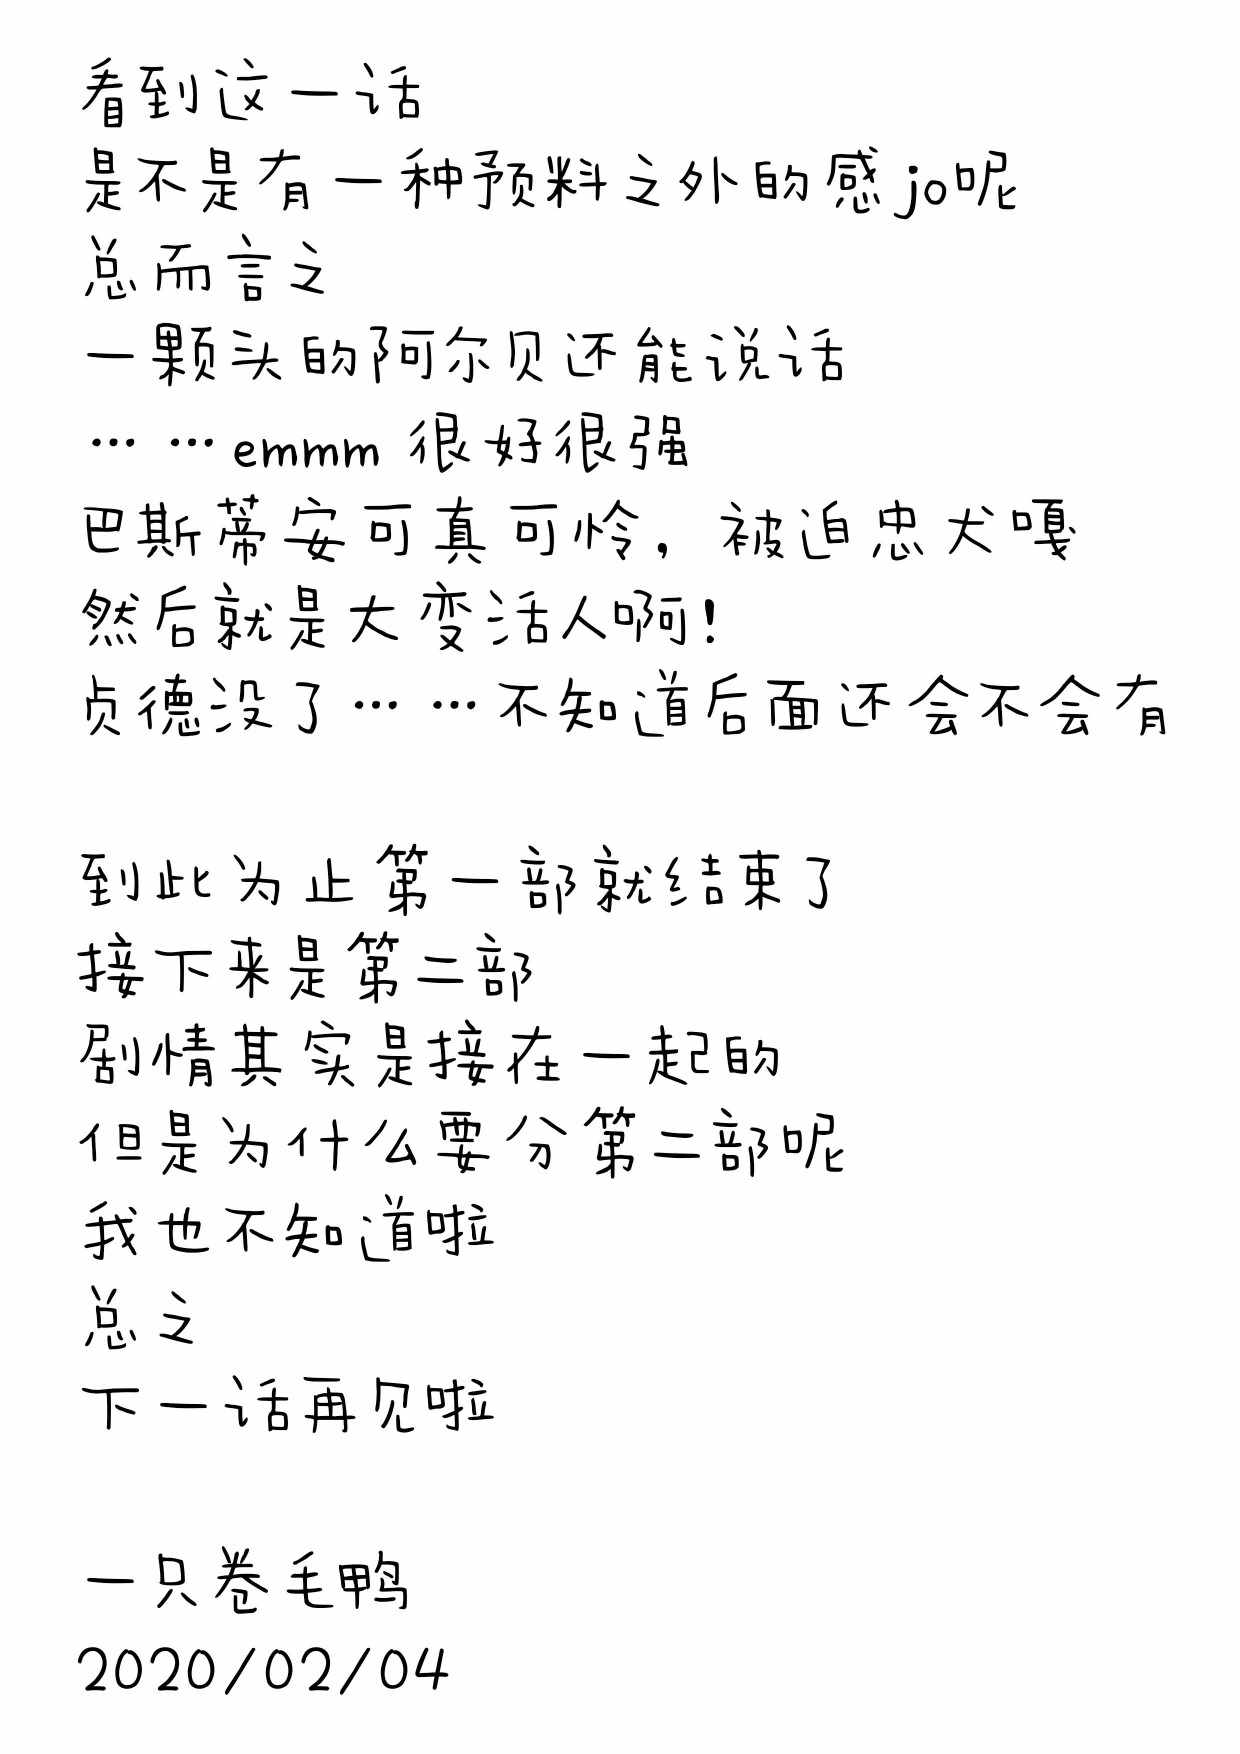 看到这一话
是不是有一种预料之外的感jo呢
总而言之
一颗头的阿尔贝还能说话
……emmm 很好很强
巴斯蒂安可真可怜，被迫忠犬嘎
然后就是大变活人啊！
贞德没了……不知道后面还会不会有
到此为止第一部就结束了
接下来是第二部
剧情其实是接在一起的
但是为什么要分第二部呢
我也不知道啦
总之
下一话再见啦
一只卷毛鸭
2020/02/04